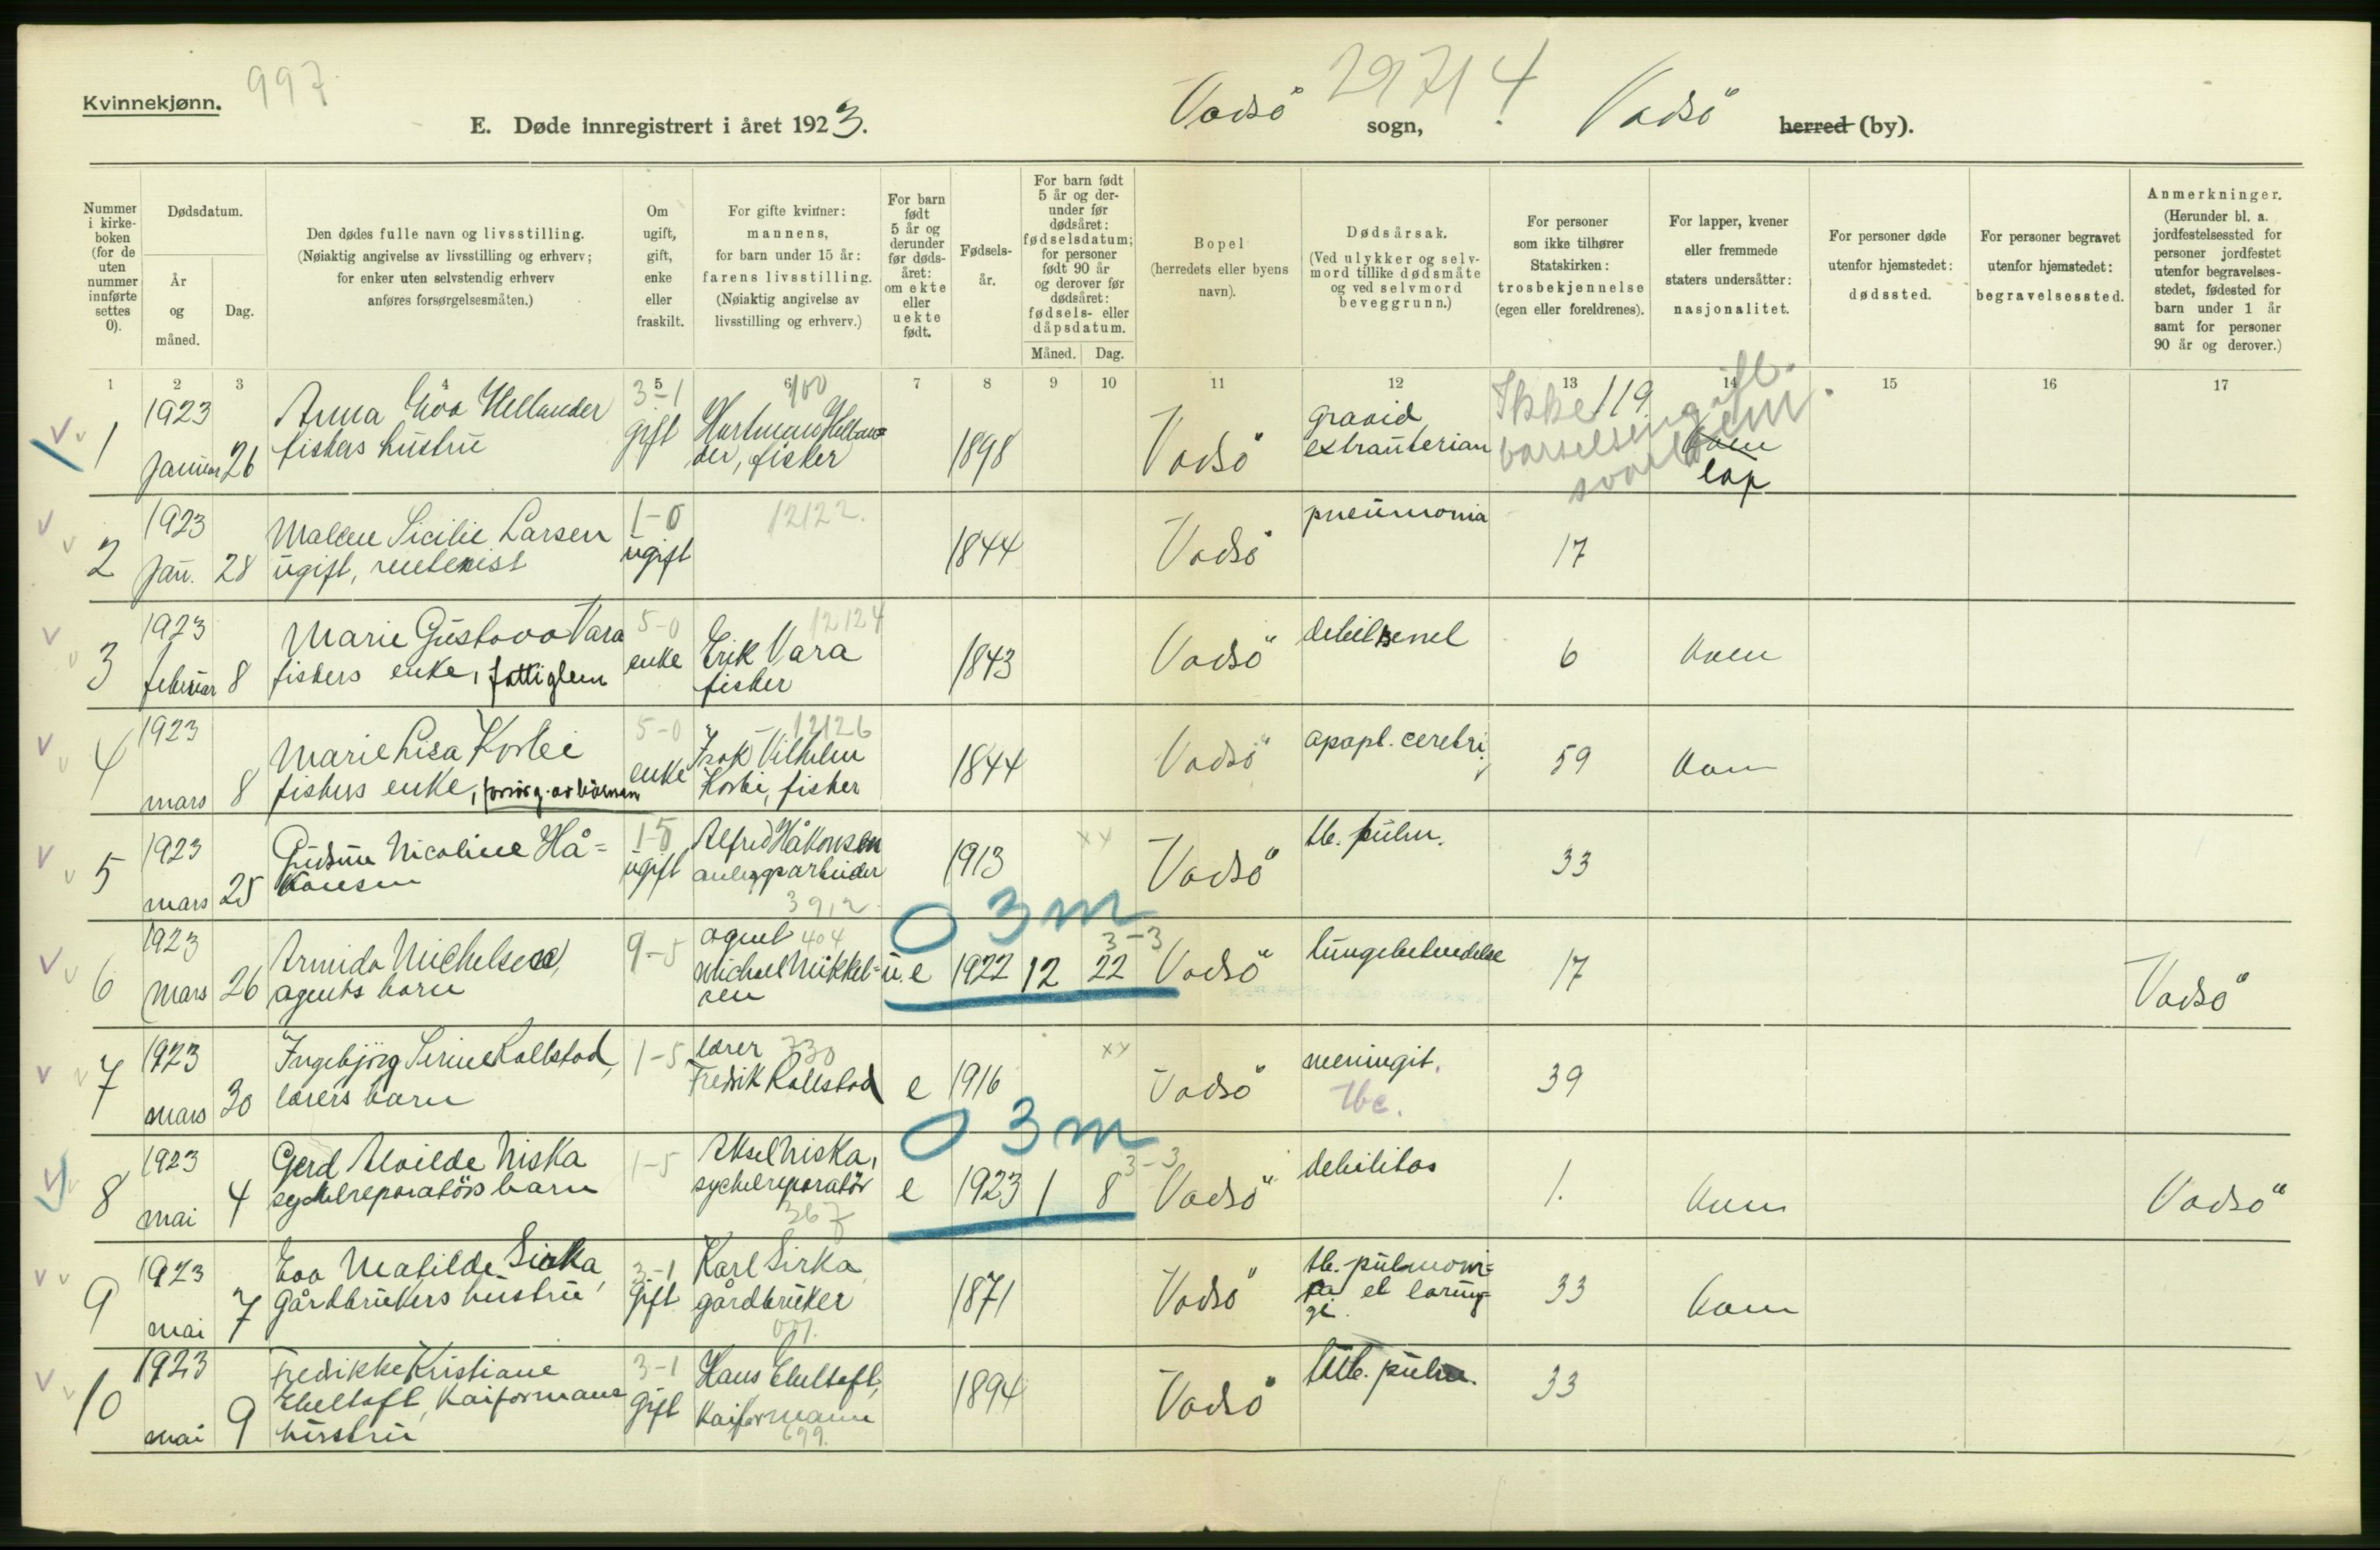 Kvinnekjønn.
997
E. Døde innregistrert i året 1923.
Vadsö sogn,
29714
Vadsö herred (by).
Nummer i kirke-boken (for de uten nummer innførte settes 0).
Dødsdatum.
År og måned.
Dag.
Den dødes fulle navn og livsstilling.
(Nøiaktig angivelse av livsstilling og erhverv; for enker uten selvstendig erhverv anføres forsørgelsesmåten.)
Om ugift, gift, enke eller fraskilt.
For gifte kvinner: mannens, for barn under 15 år: farens livsstilling. (Nøiaktig angivelse av livsstilling og erhverv.)
For barn født 5 år og derunder før døds-året: om ekte eller uekte født.
Fødsels-år.
For barn født 5 år og der-under før dødsåret: fødselsdatum; for personer født 90 år og derover før dødsåret: fødsels- eller dåpsdatum.
Måned. Dag.
Bopel (herredets eller byens navn).
Dødsårsak. (Ved ulykker og selv-mord tillike dødsmåte og ved selvmord beveggrunn.)
For personer som ikke tilhører Statskirken: trosbekjennelse (egen eller foreldrenes).
For lapper, kvener eller fremmede staters undersåtter: nasjonalitet.
For personer døde utenfor hjemstedet: dødssted.
For personer begravet utenfor hjemstedet: begravelsessted.
Anmerkninger. (Herunder bl. a. jordfestelsessted for personer jordfestet utenfor begravelses-stedet, fødested for barn under 1 år samt for personer 90 år og derover.)
1 2 3 4 5 6 7 8 9 10 11 12 13 14 15 16 17
1 1923 Januar 26 Anna Eva Hellander fiskers hustru 3-1 gift Hartman Hellan= der, fisker 1898 Vadsö gravid extrauterian Ikke 119 barselseng lap
2 1923 Jan. 28 Malene Sicilie Larsen ugift, rentenist 1-0 ugift 12122. 1844 Vadsö pneumonia 17
3 1923 februar 8 Marie Gustava Vara fiskers enke, fattiglem 5-0 enke 12124 Erik Vara fisker 1843 Vadsö debil. senel 6 kven
4 1923 mars 8 Marie Lisa Korbi fiskers enke, forsörg. av barnen 5-0 enke 12126 Isak Vilhelm Korbi, fisker 1844 Vadsö apopl. cerebri 59 kven
5 1923 mars 25 Gudrun Nicoline Hå= konsen 1-5 ugift Alfred Håkonsen anleggsarbeider 3912 1913 xx Vadsö tb. pulm. 33
6 1923 mars 26 Armida Michelsen, agents barn 9-5 agent 404 Michael Mikkel= sen u.e 1922 12 22 0 3 m 3-3 Vadsö lungebetendelse 17 Vadsö
7 1923 mars 30 Ingebjörg Serine Rallstad, lærers barn 1-5 lærer 330 Fredrik Rallstad e 1916 xx Vadsö meningit. tbc. 39
8 1923 mai 4 Gerd Alvilde Niska sychelreparatörs barn 1-5 Aksel Niska, sychelreparatör 367 e 1923 1 8 0 3 m 3-3 Vadsö debilitas 1. kven Vadsö
9 1923 mai 7 Eva Matilde Sirka, gårdbrukers hustru 3-1 gift Karl Sirka gårdbruker 001. 1871 Vadsö tb. pulmoni= et laryn= gi. 33 kven
10 1923 mai 9 Fredrikke Kristiane Ebeltoft, kaiformans hustru 3-1 gift Hans Ebeltoft, kaiformann 699. 1894 Vadsö tub. pulm. 33